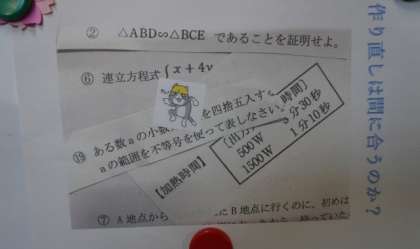 ② △ABD∽△BCE であることを証明せよ。
⑥ 連立方程式 { x + 4y
⑲ ある数aの小数 を四捨五入す
aの範囲を不等号を使って表しなさい。
【加熱時間】
時間】
500W 分30秒
1500W 1分10秒
⑦ A地点から B地点に行くのに、初めは
作り直しは間に合うのか？